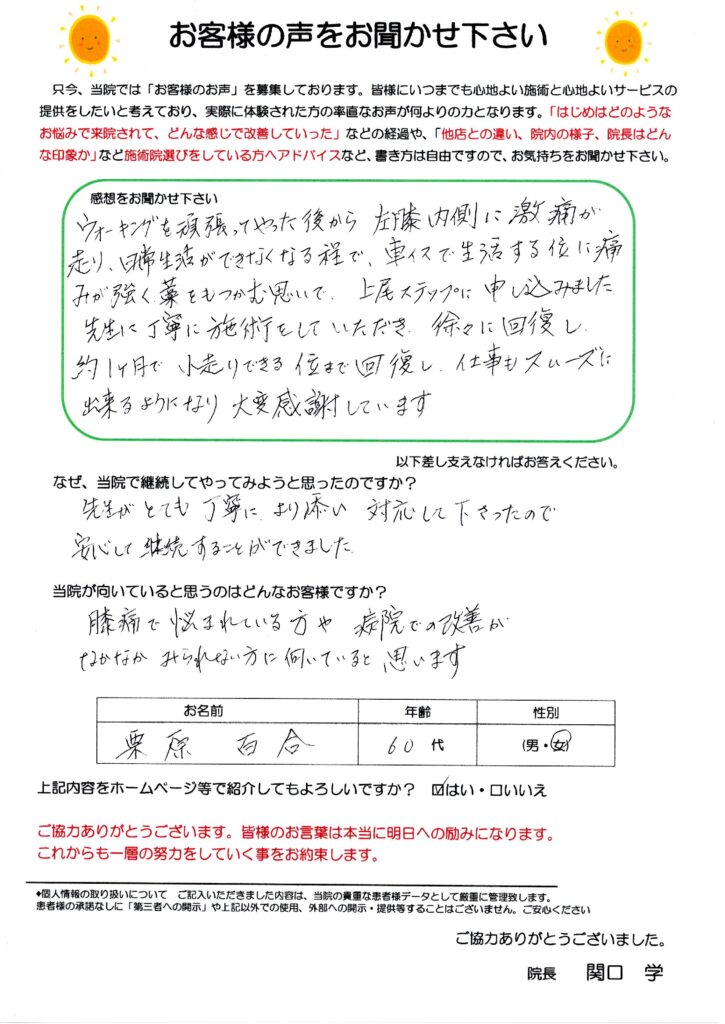 お客様の声をお聞かせ下さい
只今、当院では「お客様のお声」を募集しております。皆様にいつまでも心地よい施術と心地よいサービスの
提供をしたいと考えており、実際に体験された方の率直なお声が何よりの力となります。「はじめはどのような
お悩みで来院されて、どんな感じで改善していった」などの経過や、「他店との違い、院内の様子、院長はどん
な印象か」など施術院選びをしている方へアドバイスなど、書き方は自由ですので、お気持ちをお聞かせ下さい。
感想をお聞かせ下さい
ウォーキングを頑張ってやった後から 左膝内側に激痛が
走り、日常生活ができなくなる程で、車イスで生活する位に痛
みが強く、藁をもつかむ思いで、上尾ステップに申し込みました
先生に丁寧に施術をしていただき、徐々に回復し、
約1ヶ月で小走りできる位まで回復し、仕事もスムーズに
出来るようになり大変感謝しています
以下差し支えなければお答えください。
なぜ、当院で継続してやってみようと思ったのですか？
先生がとても丁寧に、より添い 対応して下さったので
安心して継続することができました
当院が向いていると思うのはどんなお客様ですか？
膝痛で悩まれている方や 病院での改善が
なかなかみられない方に向いていると思います
お名前 年齢 性別
栗原 百合 60代 (男・女)
上記内容をホームページ等で紹介してもよろしいですか？ ☑はい・□いいえ
ご協力ありがとうございます。皆様のお言葉は本当に明日への励みになります。
これからも一層の努力をしていく事をお約束します。
*個人情報の取り扱いについて ご記入いただきました内容は、当院の貴重な患者様データとして厳重に管理致します。
患者様の承諾なしに「第三者への開示」や上記以外での使用、外部への開示・提供等することはございません。ご安心ください
ご協力ありがとうございました。
院長 関口 学